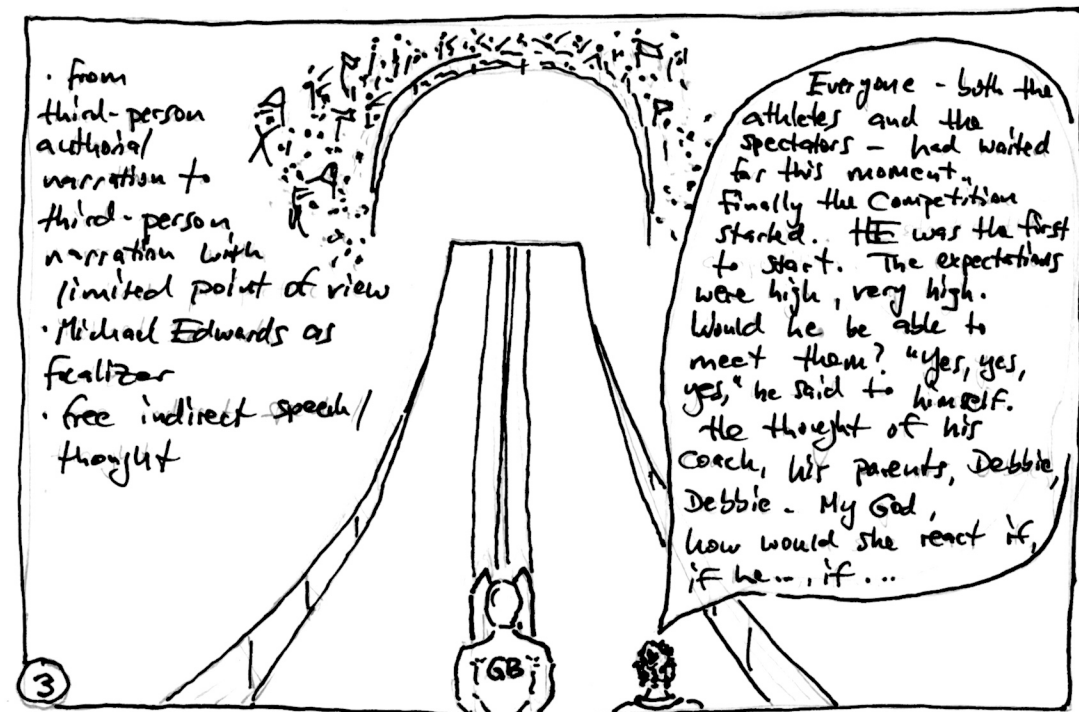 · from
third-person
authorial
narration to
third-person
narration with
limited point of view
· Michael Edwards as
focalizer
· free indirect speech/
thought
Everyone - both the
athletes and the
spectators - had waited
for this moment.
Finally the Competition
started. HE was the first
to start. The expectations
were high, very high.
Would he be able to
meet them? "Yes, yes,
yes," he said to himself.
He thought of his
coach, his parents, Debbie,
Debbie. My God,
how would she react if,
if he..., if ...
GB
3